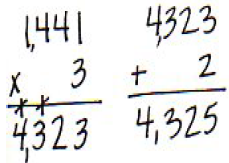 1,441
x 3
4,323
4,323
+ 2
4,325